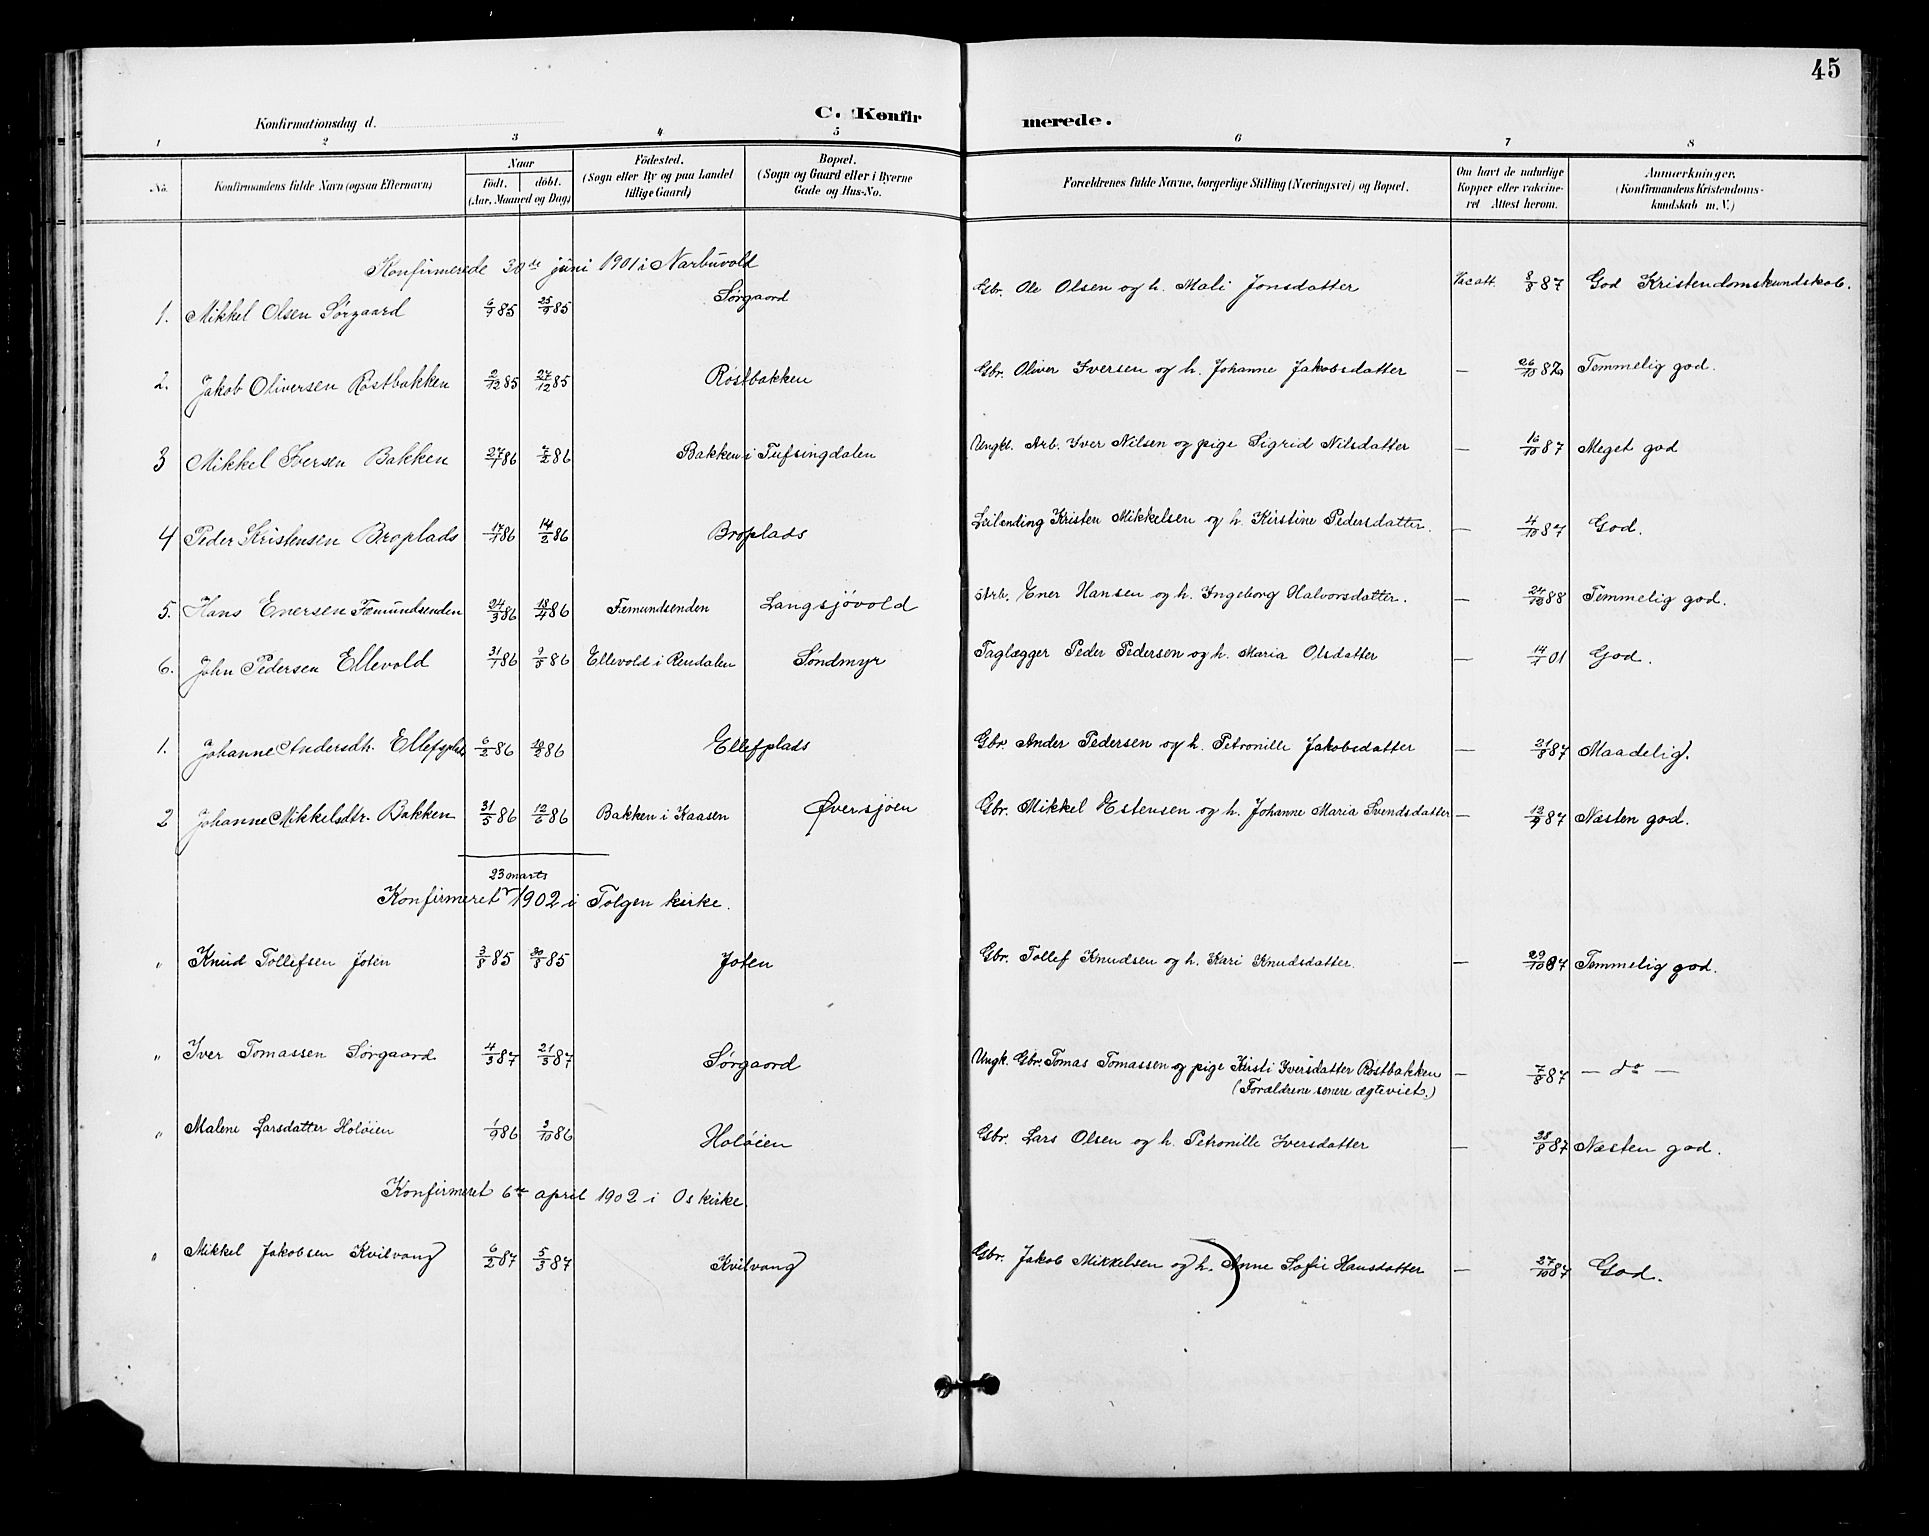 45
Konfirmationsdag d. C. Konfirmerede.
1 2 3 4 5 6 7 8
No. Konfirmandens fulde Navn (ogsaa Efternavn) Naar født. døbt. (Aar, Maaned og Dag) Fødested. (Sogn eller By og paa Landet tillige Gaard) Bopæl. (Sogn og Gaard eller i Byerne Gade og Hus-No. Forældrenes fulde Navne, borgerlige Stilling (Næringsvei) og Bopæl. Om havt de naturlige Kopper eller vakcineret Attest herom. Anmærkninger. (Konfirmandens Kristendomskundskab m. V.)
Konfirmerede 30te juni 1901 i Narbuvold
1. Mikkel Olsen Sørgaard 6/9 85 25/9 85 Sørgaard Gbr. Ole Olsen og h. Mali Jonsdatter Vac att. 8/8 87 God Kristendomskundskab.
2. Jakob Oliversen Røstbakken 2/12 85 27/12 85 Røstbakken Gbr. Oliver Iversen og h. Johanne Jakobsdatter — 26/10 87 Temmelig god.
3 Mikkel Iversen Bakken 27/1 86 7/2 86 Bakken i Tufsingdalen Ungk. Arb. Iver Nilsen og pige Sigrid Nilsdatter — 16/10 87 Meget god
4 Peder Kristensen Broplads 17/1 86 14/2 86 Broplads Leilending Kristen Mikkelsen og h. Kirstine Pedersdatter. — 4/10 87 God.
5. Hans Enersen Femundsenden 24/3 86 18/4 86 Femundsenden Langsjøvold Arb. Ener Hansen og h. Ingeborg Halvorsdatter. — 24/10 88 Temmelig god.
6. John Pedersen Ellevold 31/1 86 9/5 86 Ellevold i Rendalen Søndmyr Taglægger Peder Pedersen og h. Maria Olsdatter — 14/1 01 God.
1. Johanne Andersdtr. Ellefplads 6/2 86 86 Ellefplads Gbr. Ander Pedersen og h. Petronille Jakobsdatter — 21/8 87 Maadelig.
2 Johanne Mikkelsdtr. Bakken 31/5 86 12/6 86 Bakken i Kaasen Øversjøen Gbr. Mikkel Estensen og h. Johanne Maria Svendsdatter — 12/9 87 Næsten god.
23 marts
Konfirmeret 1902 i Tolgen kirke.
" Knud Tollefsen Joten 3/8 85 30/8 85 Joten Gbr. Tollef Knudsen og h. Kari Knudsdatter. — 29/10 87 Temmelig god.
" Iver Tomassen Sørgaard 4/3 87 21/3 87 Sørgaard Ungk. Gbr. Tomas Tomassen og pige Kirsti Iversdatter Røstbakken — 7/8 87 — do —
(Forældrene senere ægteviet.)
" Malene Larsdatter Holøien 1/9 86 3/10 86 Holøien Gbr. Lars Olsen og h. Petronille Iversdatter — 28/8 87 Næsten god.
Konfirmeret 6te april 1902 i Os kirke.
" Mikkel Jakobsen Kvilvang 6/2 87 5/3 87 Kvilvang Gbr. Jakob Mikkelsen og h. Anne Sofie Hansdatter — 27/10 87 God.